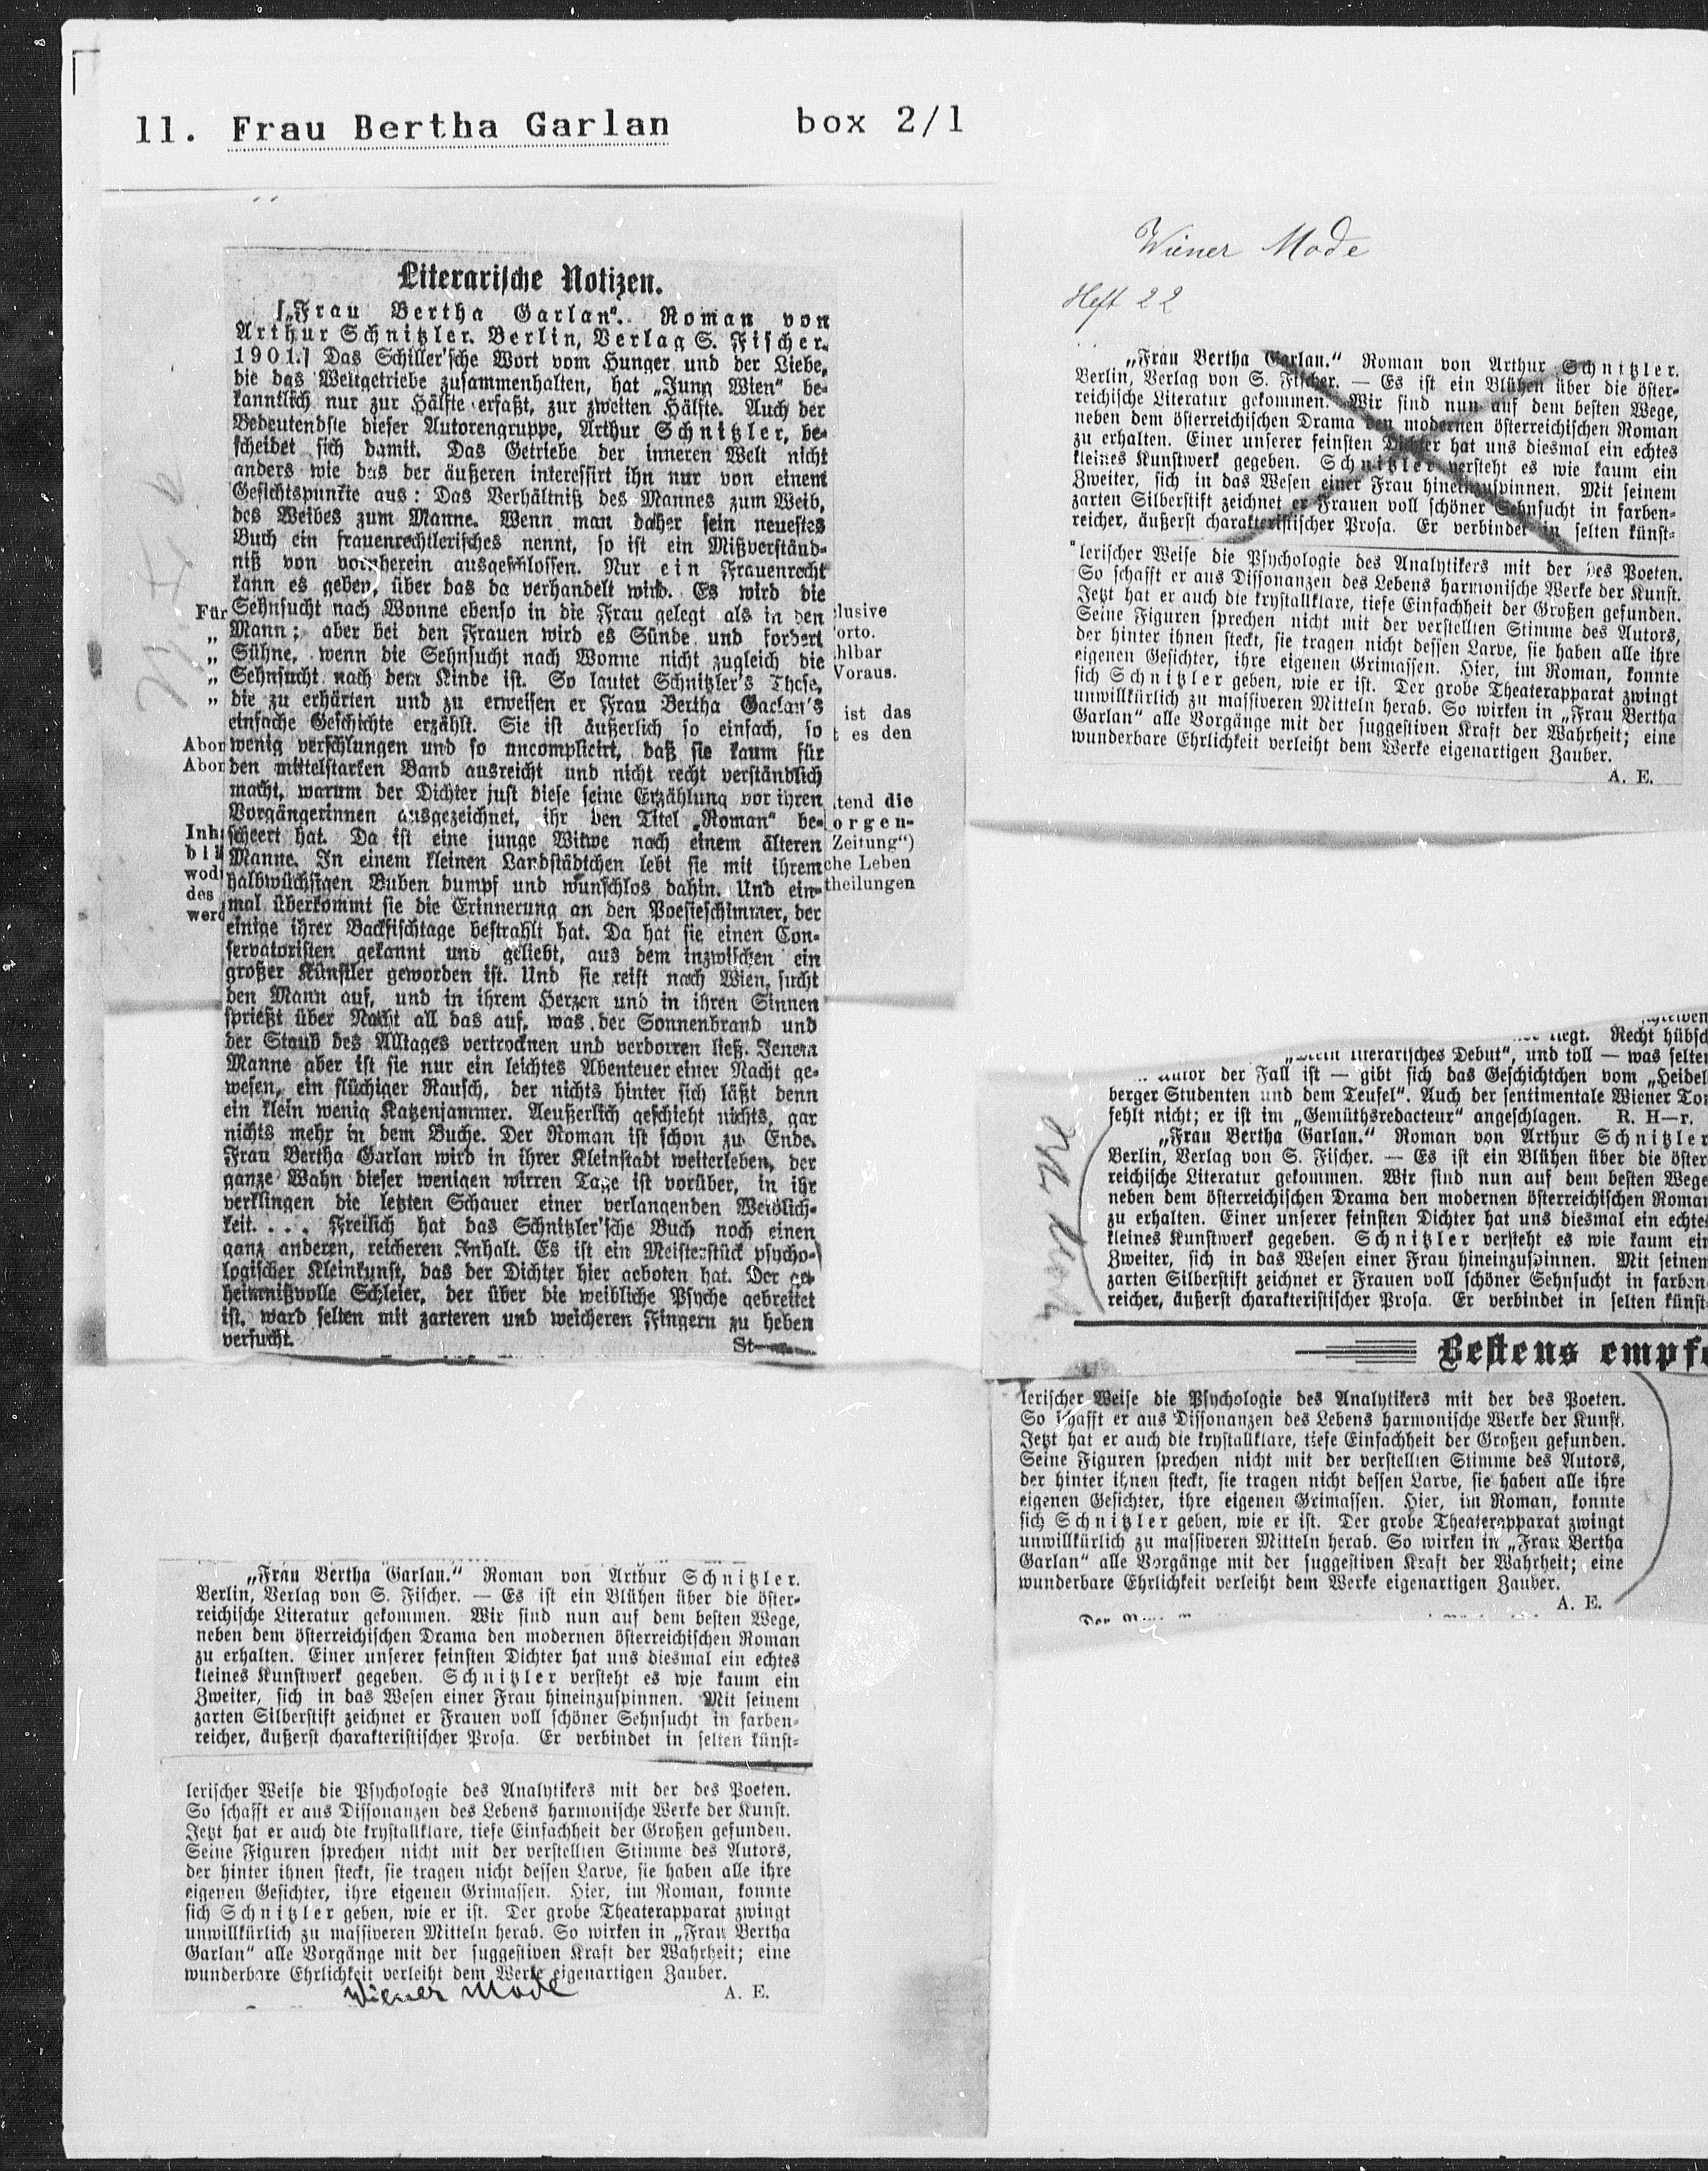 11. Frau Bertha Garlan box 2/1
Literarische Notizen.
[„Frau Bertha Garlan“. Roman von
Arthur Schnitzler. Berlin, Verlag S. Fischer.
1901.] Das Schiller'sche Wort vom Hunger und der Liebe,
die das Weltgetriebe zusammenhalten, hat „Jung Wien“ be-
kanntlich nur zur Hälfte erfaßt, zur zweiten Hälfte. Auch der
Bedeutendste dieser Autorengruppe, Arthur Schnitzler, be-
scheidet sich damit. Das Getriebe der inneren Welt nicht
anders wie das der äußeren interessirt ihn nur von einem
Gesichtspunkte aus: Das Verhältniß des Mannes zum Weib,
des Weibes zum Manne. Wenn man daher sein neuestes
Buch ein frauenrechtlerisches nennt, so ist ein Mißverständ-
niß von vornherein ausgeschlossen. Nur ein Frauenrecht
kann es geben, über das da verhandelt wird. Es wird die
Sehnsucht nach Wonne ebenso in die Frau gelegt als in den
Mann; aber bei den Frauen wird es Sünde und fordert
Sühne, wenn die Sehnsucht nach Wonne nicht zugleich die
Sehnsucht nach dem Kinde ist. So lautet Schnitzler's These,
die zu erhärten und zu erweisen er Frau Bertha Garlan's
einfache Geschichte erzählt. Sie ist äußerlich so einfach, so
wenig verschlungen und so uncomplicirt, daß sie kaum für
den mittelstarken Band ausreicht und nicht recht verständlich
macht, warum der Dichter just diese seine Erzählung vor ihren
Vorgängerinnen ausgezeichnet, ihr den Titel „Roman“ be-
scheert hat. Da ist eine junge Witwe nach einem älteren
Manne. In einem kleinen Landstädtchen lebt sie mit ihrem
halbwüchsigen Buben dumpf und wunschlos dahin. Und ein-
mal überkommt sie die Erinnerung an den Poesieschimmer, der
einige ihrer Backfischtage bestrahlt hat. Da hat sie einen Con-
servatoristen gekannt und geliebt, aus dem inzwischen ein
großer Künstler geworden ist. Und sie reist nach Wien, sucht
den Mann auf, und in ihrem Herzen und in ihren Sinnen
sprießt über Nacht all das auf, was der Sonnenbrand und
der Staub des Alltages vertrocknen und verdorren ließ. Jenem
Manne aber ist sie nur ein leichtes Abenteuer einer Nacht ge-
wesen, ein flüchiger Rausch, der nichts hinter sich läßt denn
ein klein wenig Katzenjammer. Aeußerlich geschieht nichts, gar
nichts mehr in dem Buche. Der Roman ist schon zu Ende.
Frau Bertha Garlan wird in ihrer Kleinstadt weiterleben, der
ganze Wahn dieser wenigen wirren Tage ist vorüber, in ihr
verklingen die letzten Schauer einer verlangenden Weiblich-
keit. . . . Freilich hat das Schnitzler'sche Buch noch einen
ganz anderen, reicheren Inhalt. Es ist ein Meisterstück psycho-
logischer Kleinkunst, das der Dichter hier geboten hat. Der ge-
heimnißvolle Schleier, der über die weibliche Psyche gebreitet
ist, ward selten mit zarteren und weicheren Fingern zu heben
versucht. St—
Für
„
„
„
„
Abon
Abon
Inh
blä
wod
des
werd
clusive
orto.
hlbar
Voraus.
ist das
t es den
tend die
orgen-
Zeitung“)
che Leben
theilungen
„Frau Bertha Garlan.“ Roman von Arthur Schnitzler.
Berlin, Verlag von S. Fischer. — Es ist ein Blühen über die öster-
reichische Literatur gekommen. Wir sind nun auf dem besten Wege,
neben dem österreichischen Drama den modernen österreichischen Roman
zu erhalten. Einer unserer feinsten Dichter hat uns diesmal ein echtes
kleines Kunstwerk gegeben. Schnitzler versteht es wie kaum ein
Zweiter, sich in das Wesen einer Frau hineinzuspinnen. Mit seinem
zarten Silberstift zeichnet er Frauen voll schöner Sehnsucht in farben-
reicher, äußerst charakteristischer Prosa. Er verbindet in selten künst-
lerischer Weise die Psychologie des Analytikers mit der des Poeten.
So schafft er aus Dissonanzen des Lebens harmonische Werke der Kunst.
Jetzt hat er auch die krystallklare, tiefe Einfachheit der Großen gefunden.
Seine Figuren sprechen nicht mit der verstellten Stimme des Autors,
der hinter ihnen steckt, sie tragen nicht dessen Larve, sie haben alle ihre
eigenen Gesichter, ihre eigenen Grimassen. Hier, im Roman, konnte
sich Schnitzler geben, wie er ist. Der grobe Theaterapparat zwingt
unwillkürlich zu massiveren Mitteln herab. So wirken in „Frau Bertha
Garlan“ alle Vorgänge mit der suggestiven Kraft der Wahrheit; eine
wunderbare Ehrlichkeit verleiht dem Werke eigenartigen Zauber.
Wiener Mode A. E.
Wiener Mode
Heft 22
„Frau Bertha Garlan.“ Roman von Arthur Schnitzler.
Berlin, Verlag von S. Fischer. — Es ist ein Blühen über die öster-
reichische Literatur gekommen. Wir sind nun auf dem besten Wege,
neben dem österreichischen Drama den modernen österreichischen Roman
zu erhalten. Einer unserer feinsten Dichter hat uns diesmal ein echtes
kleines Kunstwerk gegeben. Schnitzler versteht es wie kaum ein
Zweiter, sich in das Wesen einer Frau hineinzuspinnen. Mit seinem
zarten Silberstift zeichnet er Frauen voll schöner Sehnsucht in farben-
reicher, äußerst charakteristischer Prosa. Er verbindet in selten künst-
lerischer Weise die Psychologie des Analytikers mit der des Poeten.
So schafft er aus Dissonanzen des Lebens harmonische Werke der Kunst.
Jetzt hat er auch die krystallklare, tiefe Einfachheit der Großen gefunden.
Seine Figuren sprechen nicht mit der verstellten Stimme des Autors,
der hinter ihnen steckt, sie tragen nicht dessen Larve, sie haben alle ihre
eigenen Gesichter, ihre eigenen Grimassen. Hier, im Roman, konnte
sich Schnitzler geben, wie er ist. Der grobe Theaterapparat zwingt
unwillkürlich zu massiveren Mitteln herab. So wirken in „Frau Bertha
Garlan“ alle Vorgänge mit der suggestiven Kraft der Wahrheit; eine
wunderbare Ehrlichkeit verleiht dem Werke eigenartigen Zauber.
A. E.
liegt. Recht hübsch
literarisches Debut“, und toll — was selten
Autor der Fall ist — gibt sich das Geschichtchen vom „Heidel
berger Studenten und dem Teufel“. Auch der sentimentale Wiener Ton
fehlt nicht; er ist im „Gemüthsredacteur“ angeschlagen. R. H—r.
„Frau Bertha Garlan.“ Roman von Arthur Schnitzler
Berlin, Verlag von S. Fischer. — Es ist ein Blühen über die öster
reichische Literatur gekommen. Wir sind nun auf dem besten Wege
neben dem österreichischen Drama den modernen österreichischen Roman
zu erhalten. Einer unserer feinsten Dichter hat uns diesmal ein echtes
kleines Kunstwerk gegeben. Schnitzler versteht es wie kaum ein
Zweiter, sich in das Wesen einer Frau hineinzuspinnen. Mit seinem
zarten Silberstift zeichnet er Frauen voll schöner Sehnsucht in farben
reicher, äußerst charakteristischer Prosa. Er verbindet in selten künst
Bestens empfe
lerischer Weise die Psychologie des Analytikers mit der des Poeten.
So schafft er aus Dissonanzen des Lebens harmonische Werke der Kunst.
Jetzt hat er auch die krystallklare, tiefe Einfachheit der Großen gefunden.
Seine Figuren sprechen nicht mit der verstellten Stimme des Autors,
der hinter ihnen steckt, sie tragen nicht dessen Larve, sie haben alle ihre
eigenen Gesichter, ihre eigenen Grimassen. Hier, im Roman, konnte
sich Schnitzler geben, wie er ist. Der grobe Theaterapparat zwingt
unwillkürlich zu massiveren Mitteln herab. So wirken in „Frau Bertha
Garlan“ alle Vorgänge mit der suggestiven Kraft der Wahrheit; eine
wunderbare Ehrlichkeit verleiht dem Werke eigenartigen Zauber.
A. E.